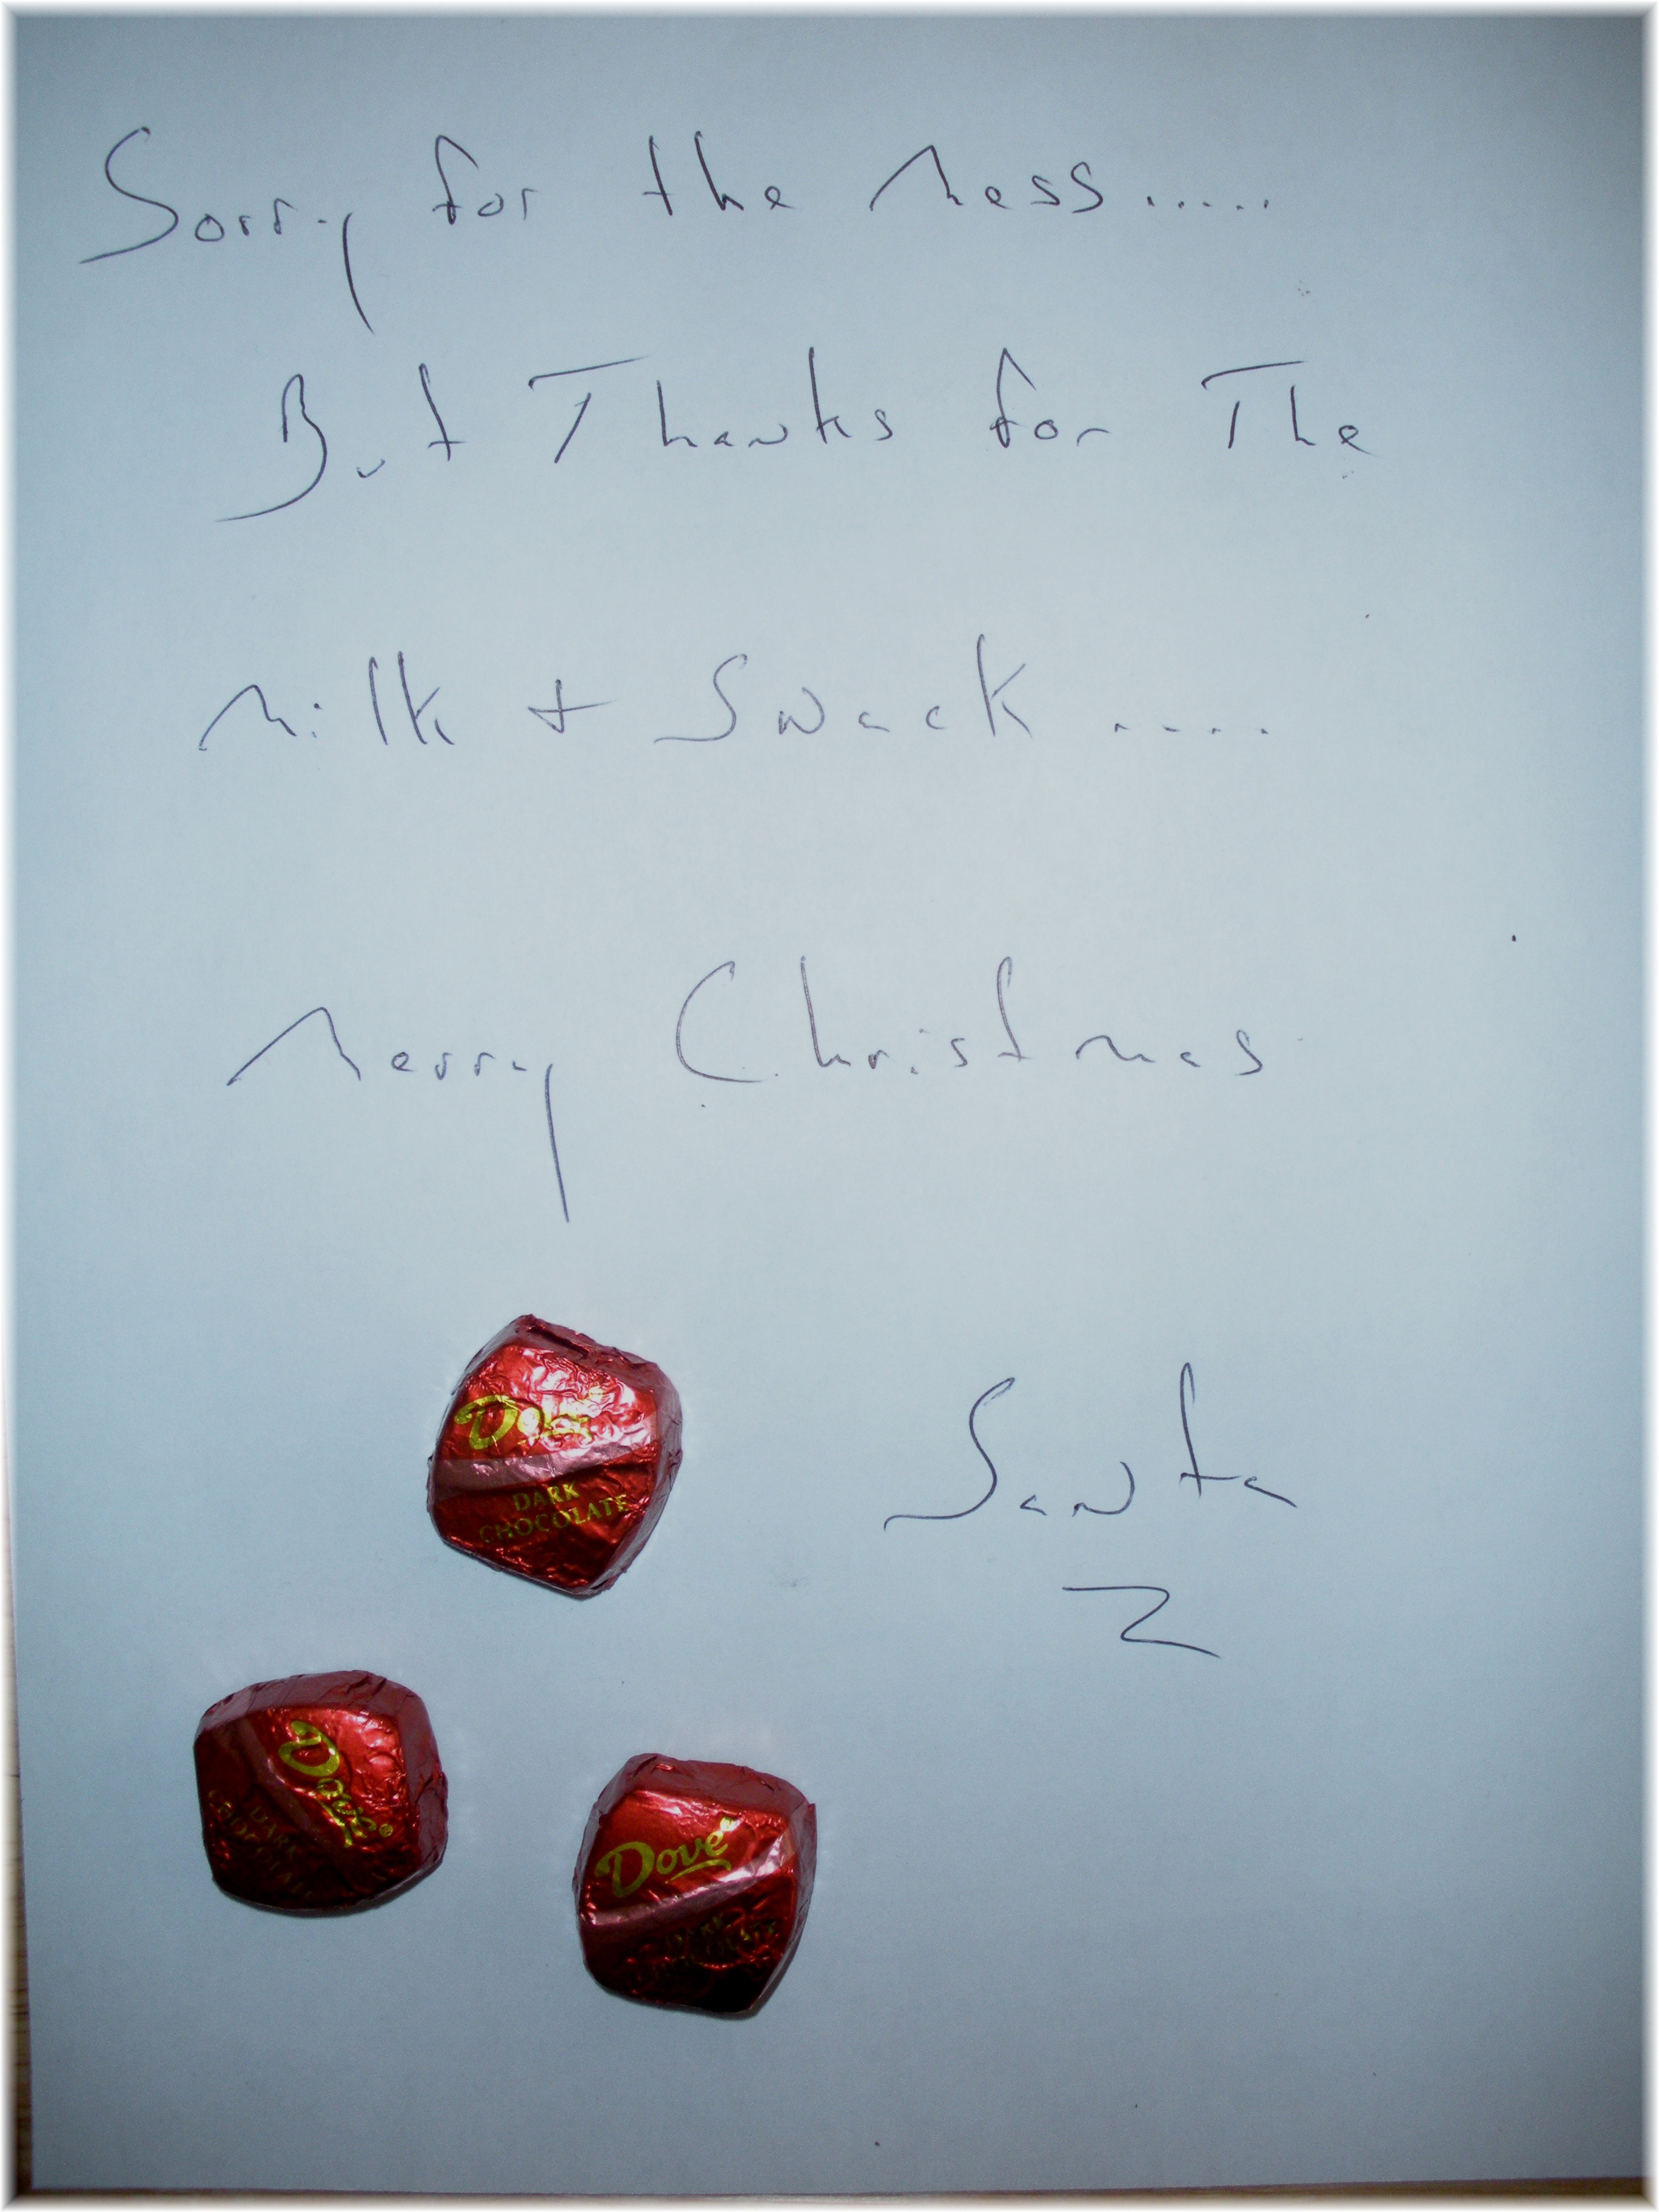 Sorry for the mess.....
But Thanks for The
Milk + Snack ....
Merry Christmas
Santa
Dove
DARK
CHOCOLATE
Dove®
DARK
CHOCOLATE
Dove®
DARK
CHOCOLATE